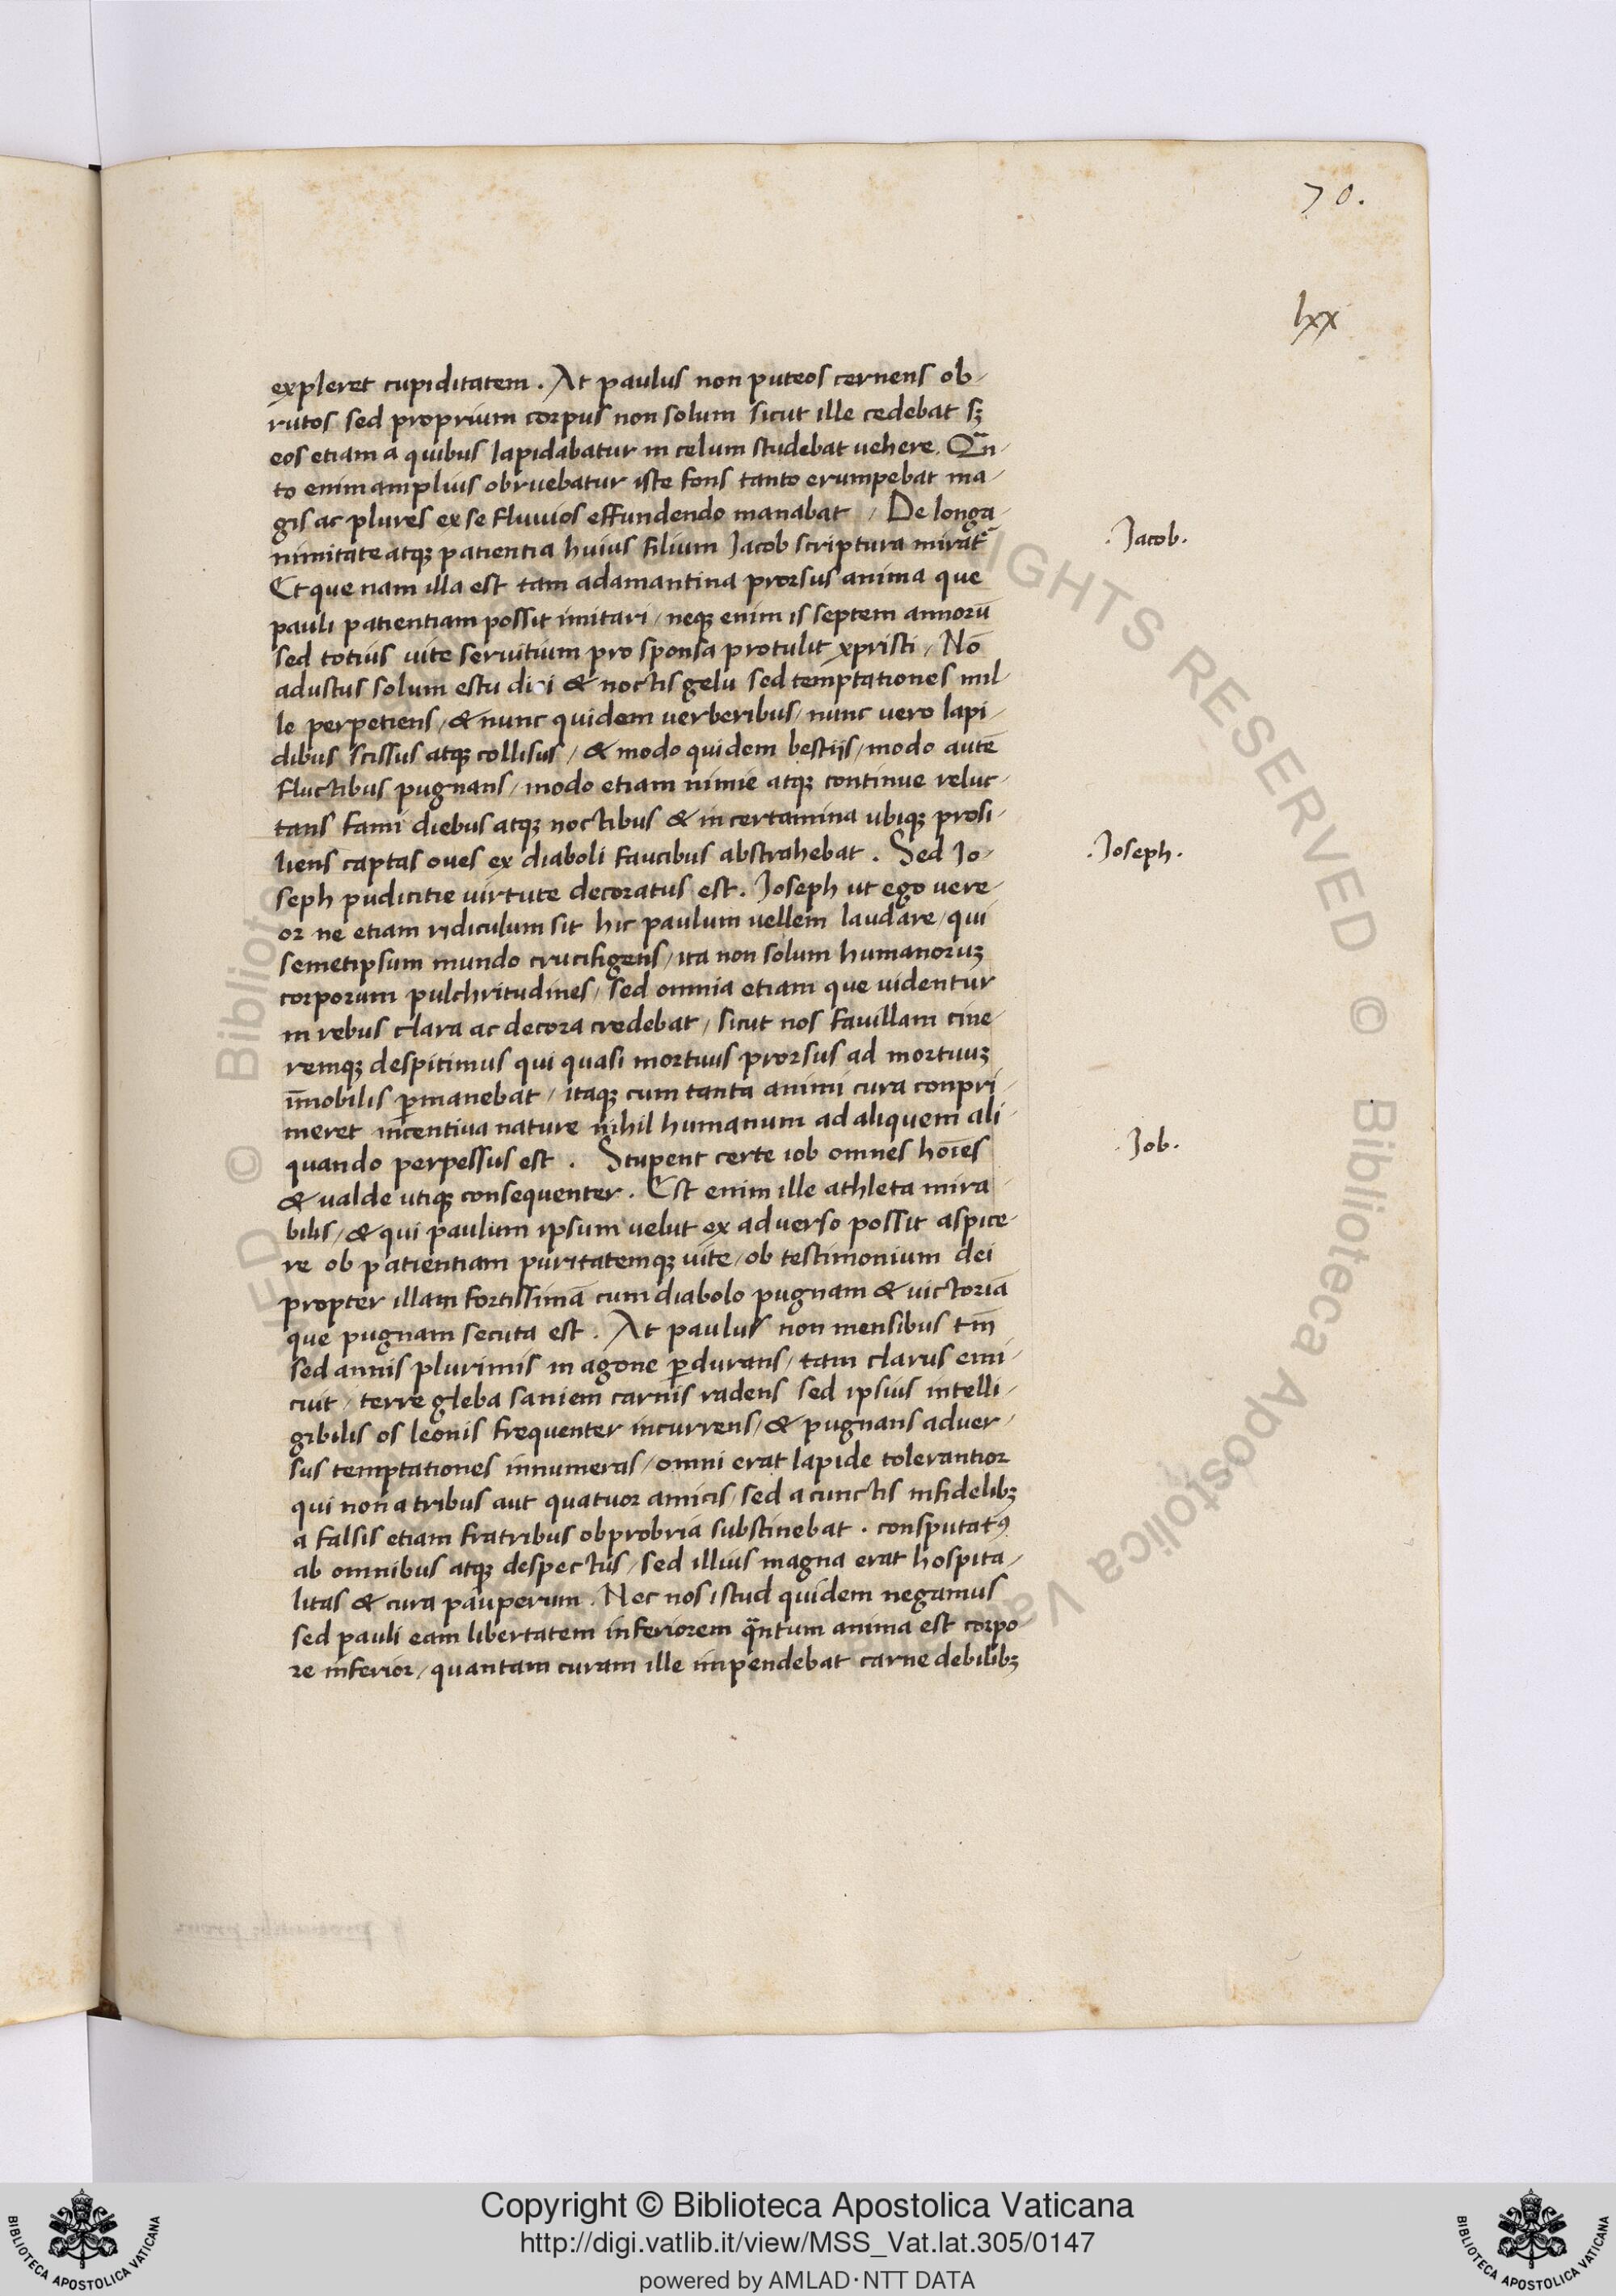 70.
lxx
expleret cupiditatem. At paulus non puteos cernens ob-
rutos sed proprium corpus non solum sicut ille cedebat sꝫ
eos etiam a quibus lapidabatur in celum studebat uehere. Qn̄-
to enim amplius obruebatur iste fons tanto erumpebat ma-
gis ac plures ex se fluuios effundendo manabat / De longa-
nimitate atqꝫ patientia huius filium Jacob scriptura mirat̄
.Jacob.
Et que nam illa est tam adamantina prorsus anima que
pauli patientiam possit imitari / neqꝫ enim is septem annorū
sed totius uite seruitium pro sponsa protulit xpristi / Nō
adustus solum estu diei & noctis gelu sed temptationes mil
le perpetiens / & nunc quidem uerberibus / nunc uero lapi-
dibus scissus atqꝫ collisus / & modo quidem bestijs / modo autē
fluctibus pugnans / modo etiam nimie atqꝫ continue reluc-
tans fami diebus atqꝫ noctibus & in certamina ubiqꝫ prosi-
liens captas oues ex diaboli faucibus abstrahebat. Sed Jo-
.Joseph.
seph pudicitie uirtute decoratus est. Joseph ut ego uere-
or ne etiam ridiculum sit hic paulum uellem laudare / qui
semetipsum mundo crucifigens / ita non solum humanoruꝫ
corporum pulchritudines / sed omnia etiam que uidentur
in rebus clara ac decora credebat / sicut nos fauillam cine-
remqꝫ despicimus qui quasi mortuus prorsus ad mortuuꝫ
īmobilis ꝑmanebat / itaqꝫ cum tanta animi cura conpri-
meret incentiua nature nihil humanum ad aliquem ali-
quando perpessus est. Stupent certe iob omnes hoīes
.Job.
& ualde utiqꝫ consequenter. Est enim ille athleta mira-
bilis / & qui paulum ipsum uelut ex aduerso possit aspice-
re ob patientiam puritatemqꝫ uite / ob testimonium dei
propter illam fortissimā cum diabolo pugnam & uictoriā
que pugnam secuta est. At paulus non mensibus tm̄
sed annis plurimis in agone ꝑdurans / tam clarus emi-
cuit / terre gleba saniem carnis radens sed ipsius intelli-
gibilis os leonis frequenter incurrens / & pugnans aduer-
sus temptationes innumeras / omni erat lapide tolerantior
qui non a tribus aut quatuor amicis / sed a cunctis infidelibꝫ
a falsis etiam fratribus obprobria substinebat. consputatꝰ
ab omnibus atqꝫ despectus / sed illius magna erat hospita-
litas & cura pauperum. Nec nos istud quidem negamus
sed pauli eam libertatem inferiorem qn̄tum anima est corpo
re inferior / quantam curam ille inpendebat carne debilibꝫ
Copyright © Biblioteca Apostolica Vaticana
http://digi.vatlib.it/view/MSS_Vat.lat.305/0147
powered by AMLAD·NTT DATA